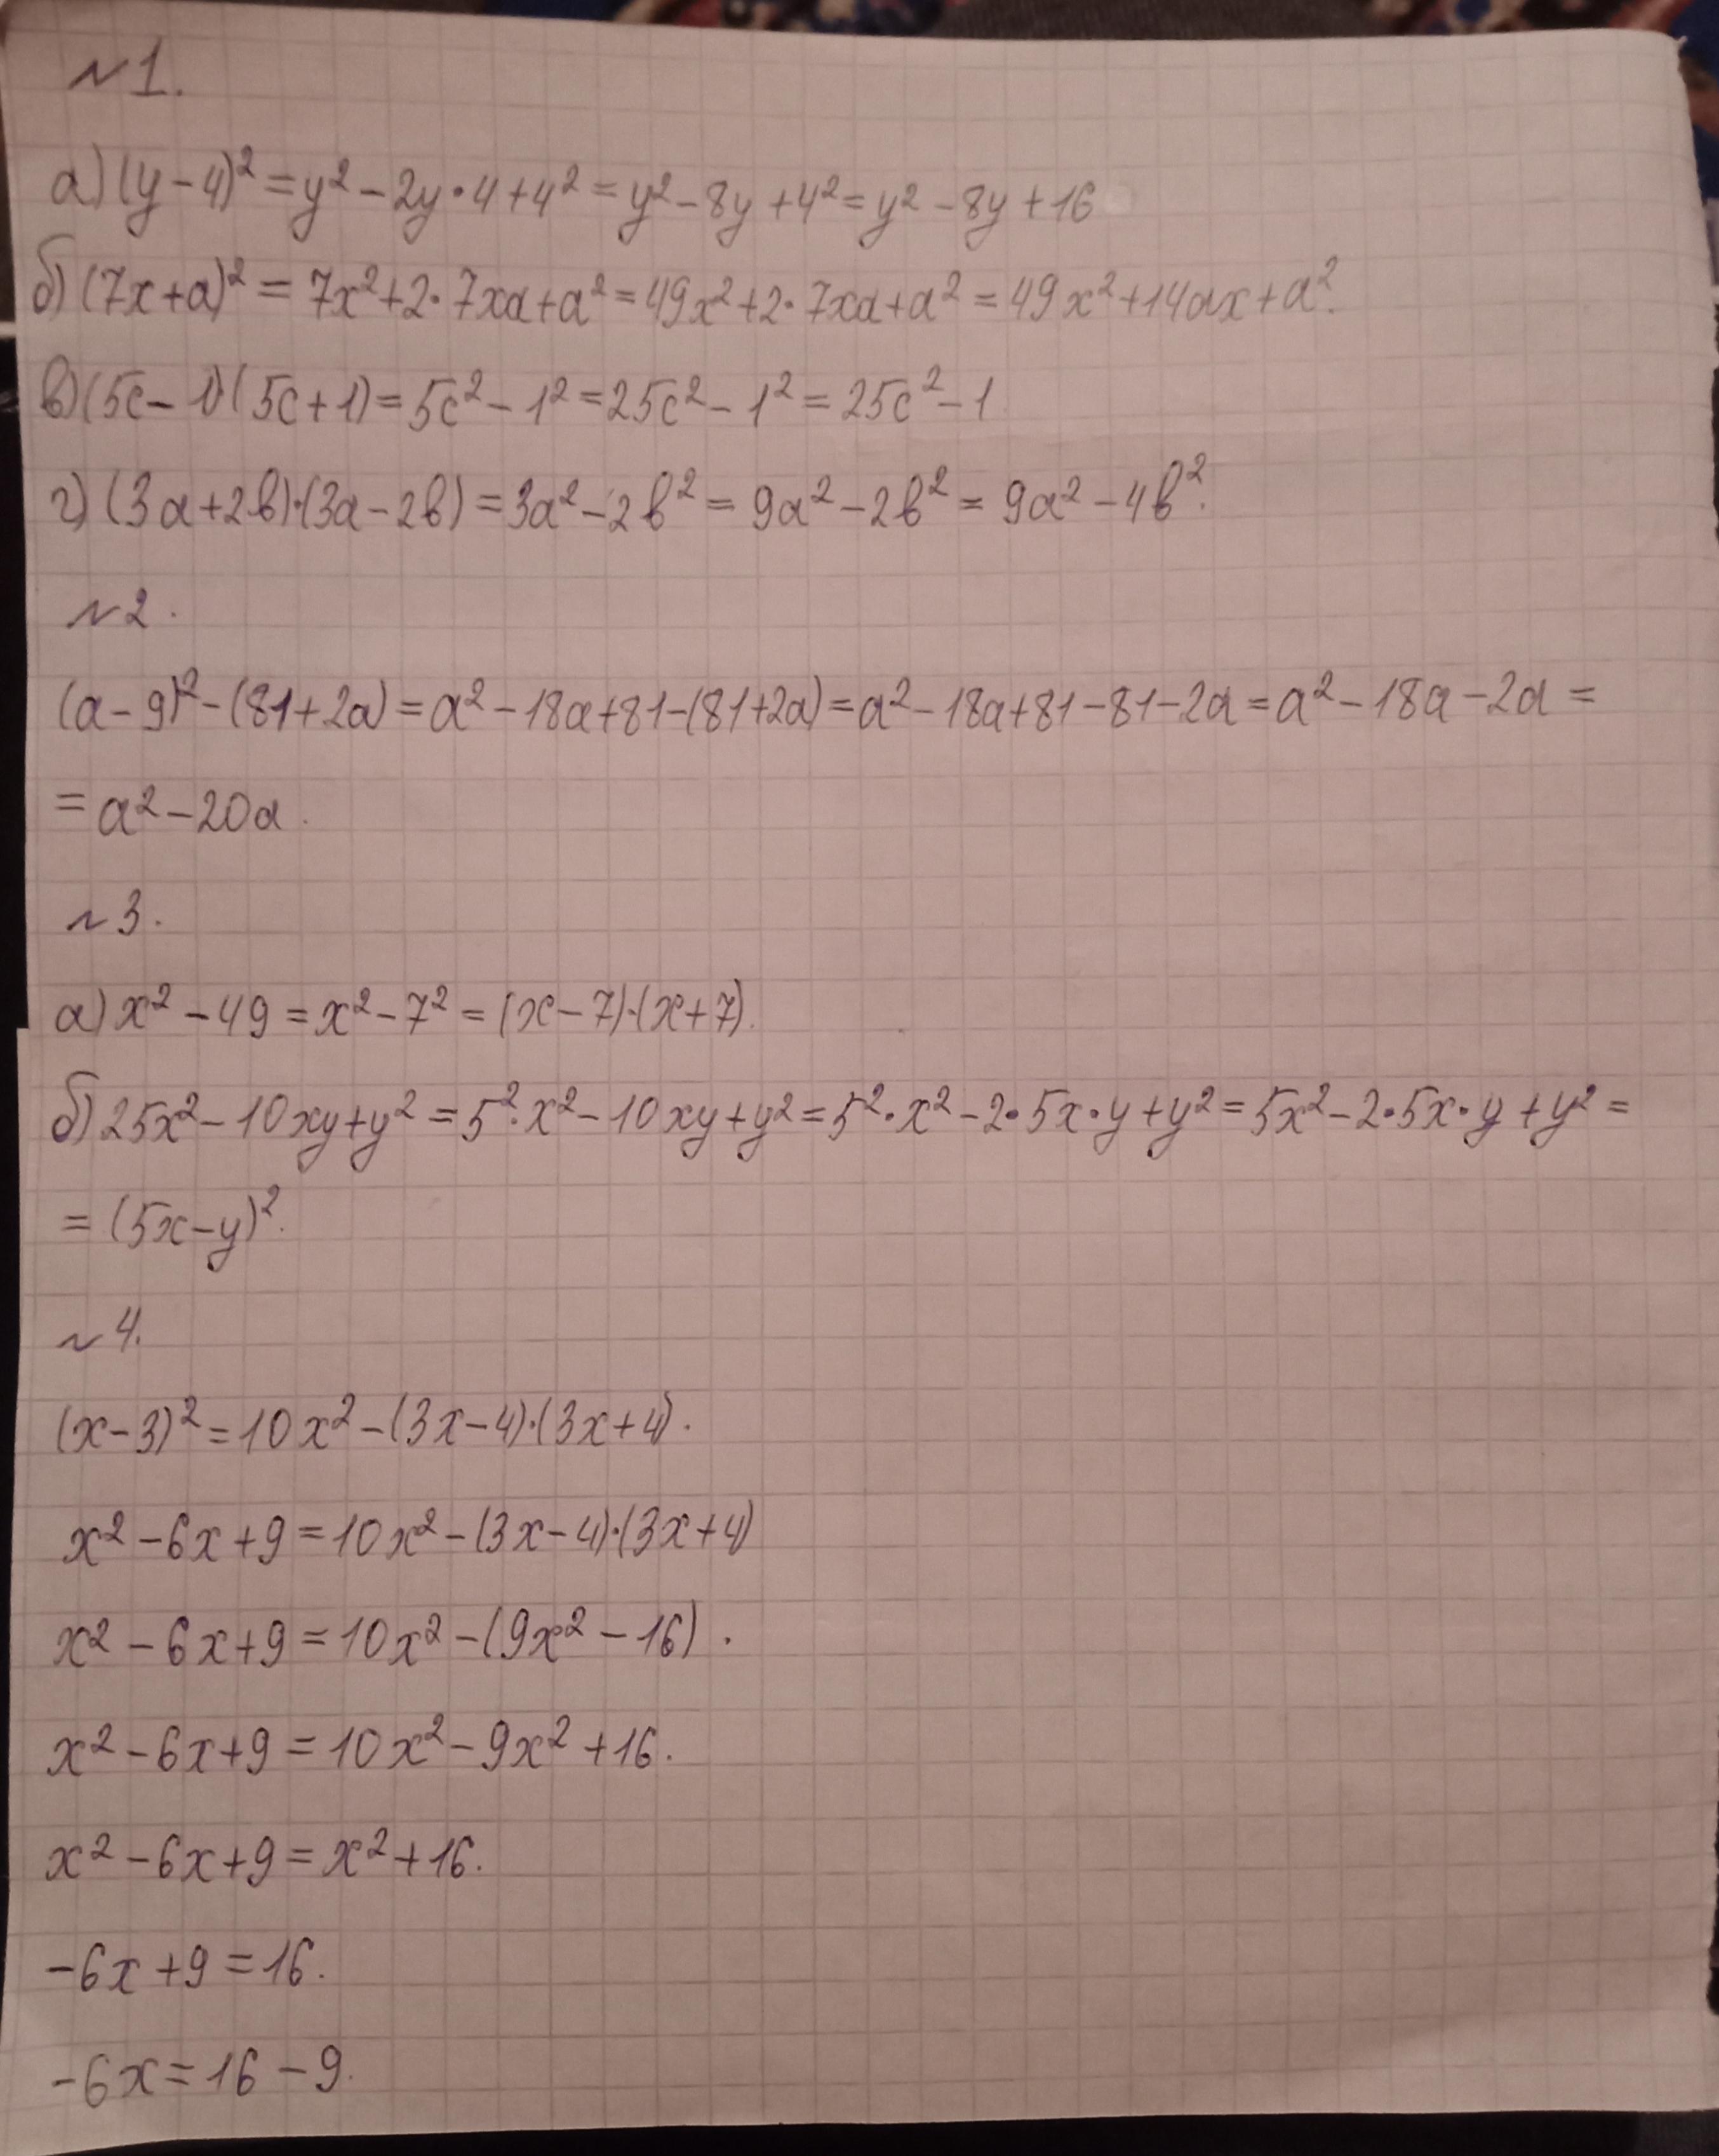 №1.
а) (y-4)² = y² - 2y·4 + 4² = y² - 8y + 4² = y² - 8y + 16
б) (7x+a)² = 7x² + 2·7xa + a² = 49x² + 2·7xa + a² = 49x² + 14ax + a².
в) (5c-1)·(5c+1) = 5c² - 1² = 25c² - 1² = 25c² - 1
г) (3a+2b)·(3a-2b) = 3a² - 2b² = 9a² - 2b² = 9a² - 4b².
№2.
(a-9)² - (81+2a) = a² - 18a + 81 - (81+2a) = a² - 18a + 81 - 81 - 2a = a² - 18a - 2a =
= a² - 20a.
№3.
а) x² - 49 = x² - 7² = (x-7)·(x+7).
б) 25x² - 10xy + y² = 5²·x² - 10xy + y² = 5²·x² - 2·5x·y + y² = 5x² - 2·5x·y + y² =
= (5x-y)².
№4.
(x-3)² = 10x² - (3x-4)·(3x+4).
x² - 6x + 9 = 10x² - (3x-4)·(3x+4)
x² - 6x + 9 = 10x² - (9x² - 16).
x² - 6x + 9 = 10x² - 9x² + 16.
x² - 6x + 9 = x² + 16.
-6x + 9 = 16.
-6x = 16 - 9.